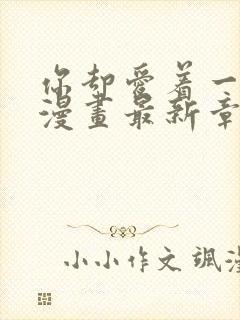 你却愛着一
漫畫最新章
小小作文颯漫